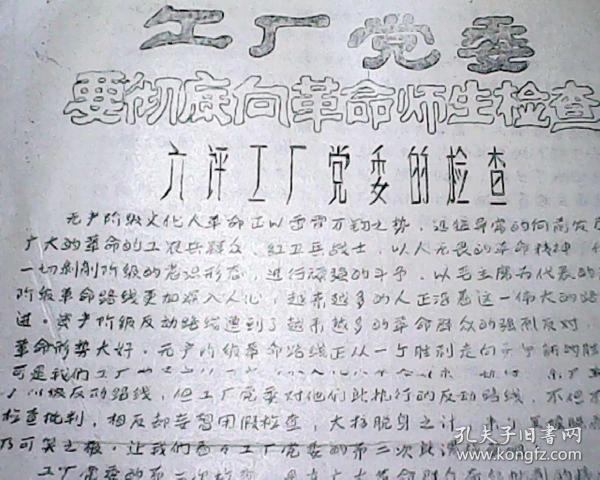 工厂党委
要彻底向革命师生检查
六评工厂党委的检查
无产阶级文化大革命正以雷霆万钧之势,迅猛异常的向前发
广大的革命的工农兵群众、红卫兵战士,以大无畏的革命精神
一切剥削阶级的意识形态,进行顽强的斗争,以毛主席为代表的
阶级革命路线更加深入人心,越来越多的人正沿着这一伟大的路
进。资产阶级反动路线遭到了越来越多的革命群众的强烈反对,
革命形势大好,无产阶级革命路线正从一个胜利走向另一个新的胜
可是我们工厂
级反动路线,但工厂党委对他们此执行的反动路线,不但不
检查批判,相反却妄想用假检查,大搞脱身之计
乃可笑之极,让我们看看工厂党委的第二次
工厂党委的第二次检查
孔夫子旧书网
www.kongfz.com